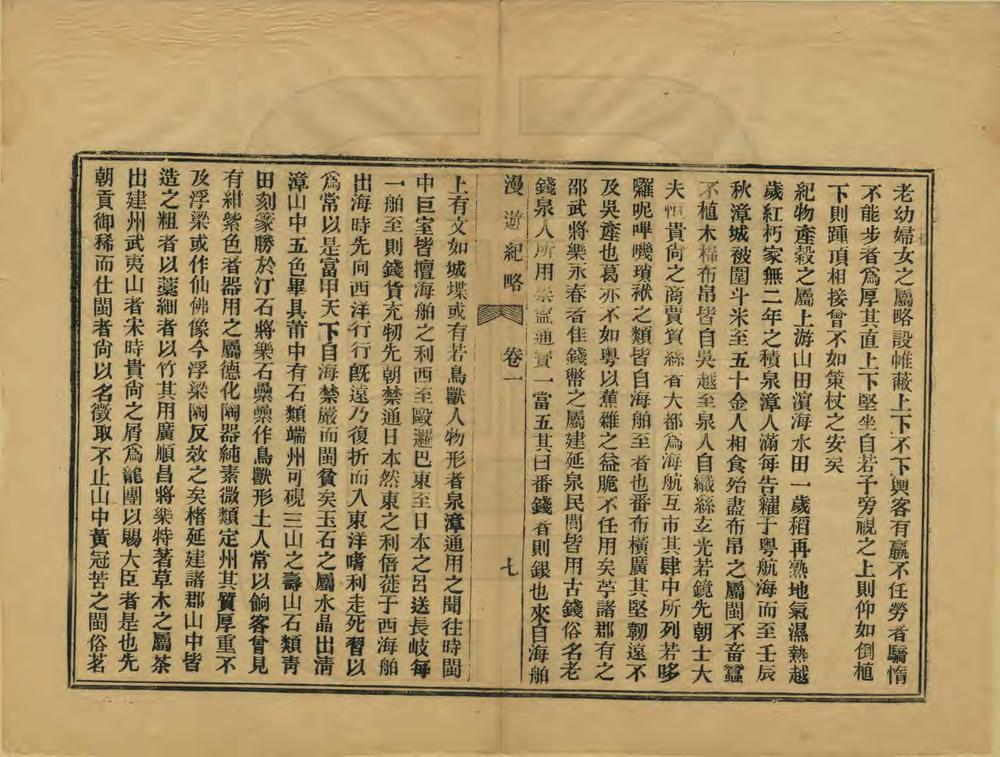 老幼婦女之屬略設帷蔽上下不下輿客有羸不任勞者驕惰
不能步者爲厚其直上下堅坐自若予旁視之上則仰如倒植
下則踵頂相接曾不如策杖之安矣
紀物產穀之屬上游山田濱海水田一歲稻再熟地氣濕熱越
歲紅朽家無二年之積泉漳人滿每告糴于粵航海而至壬辰
秋漳城被圍斗米至五十金人相食殆盡布帛之屬閩不畜蠶
不植木棉布帛皆自吳越至泉人自織絲玄光若鏡先朝士大
夫恒貴尚之商賈貿絲者大都爲海航互市其肆中所列若哆
囉呢嗶嘰瑣袱之類皆自海舶至者也番布橫廣其堅韌遠不
及吳產也葛亦不如粵以蕉雜之益脆不任用矣苧諸郡有之
邵武將樂永春者佳錢幣之屬建延泉民間皆用古錢俗名老
錢泉人所用崇寧通寶一當五其曰番錢者則銀也來自海舶
漫遊紀略 卷一 七
上有文如城堞或有若鳥獸人物形者泉漳通用之聞往時閩
中巨室皆擅海舶之利西至歐邏巴東至日本之呂送長岐每
一舶至則錢貨充牣先朝禁通日本然東之利倍蓰于西海舶
出海時先向西洋行行既遠乃復折而入東洋嗜利走死習以
爲常以是富甲天下自海禁嚴而閩貧矣玉石之屬水晶出淸
漳山中五色畢具莆中有石類端州可硯三山之壽山石類靑
田刻篆勝於汀石將樂石纍纍作鳥獸形土人常以餉客曾見
有紺紫色者器用之屬德化陶器純素微類定州其質厚重不
及浮梁或作仙佛像今浮梁陶反效之矣楮延建諸郡山中皆
造之粗者以藁細者以竹其用廣順昌將樂特著草木之屬茶
出建州武夷山者宋時貴尚之屑爲龍團以賜大臣者是也先
朝貢御稀而仕閩者尙以名徵取不止山中黃冠苦之閩俗茗